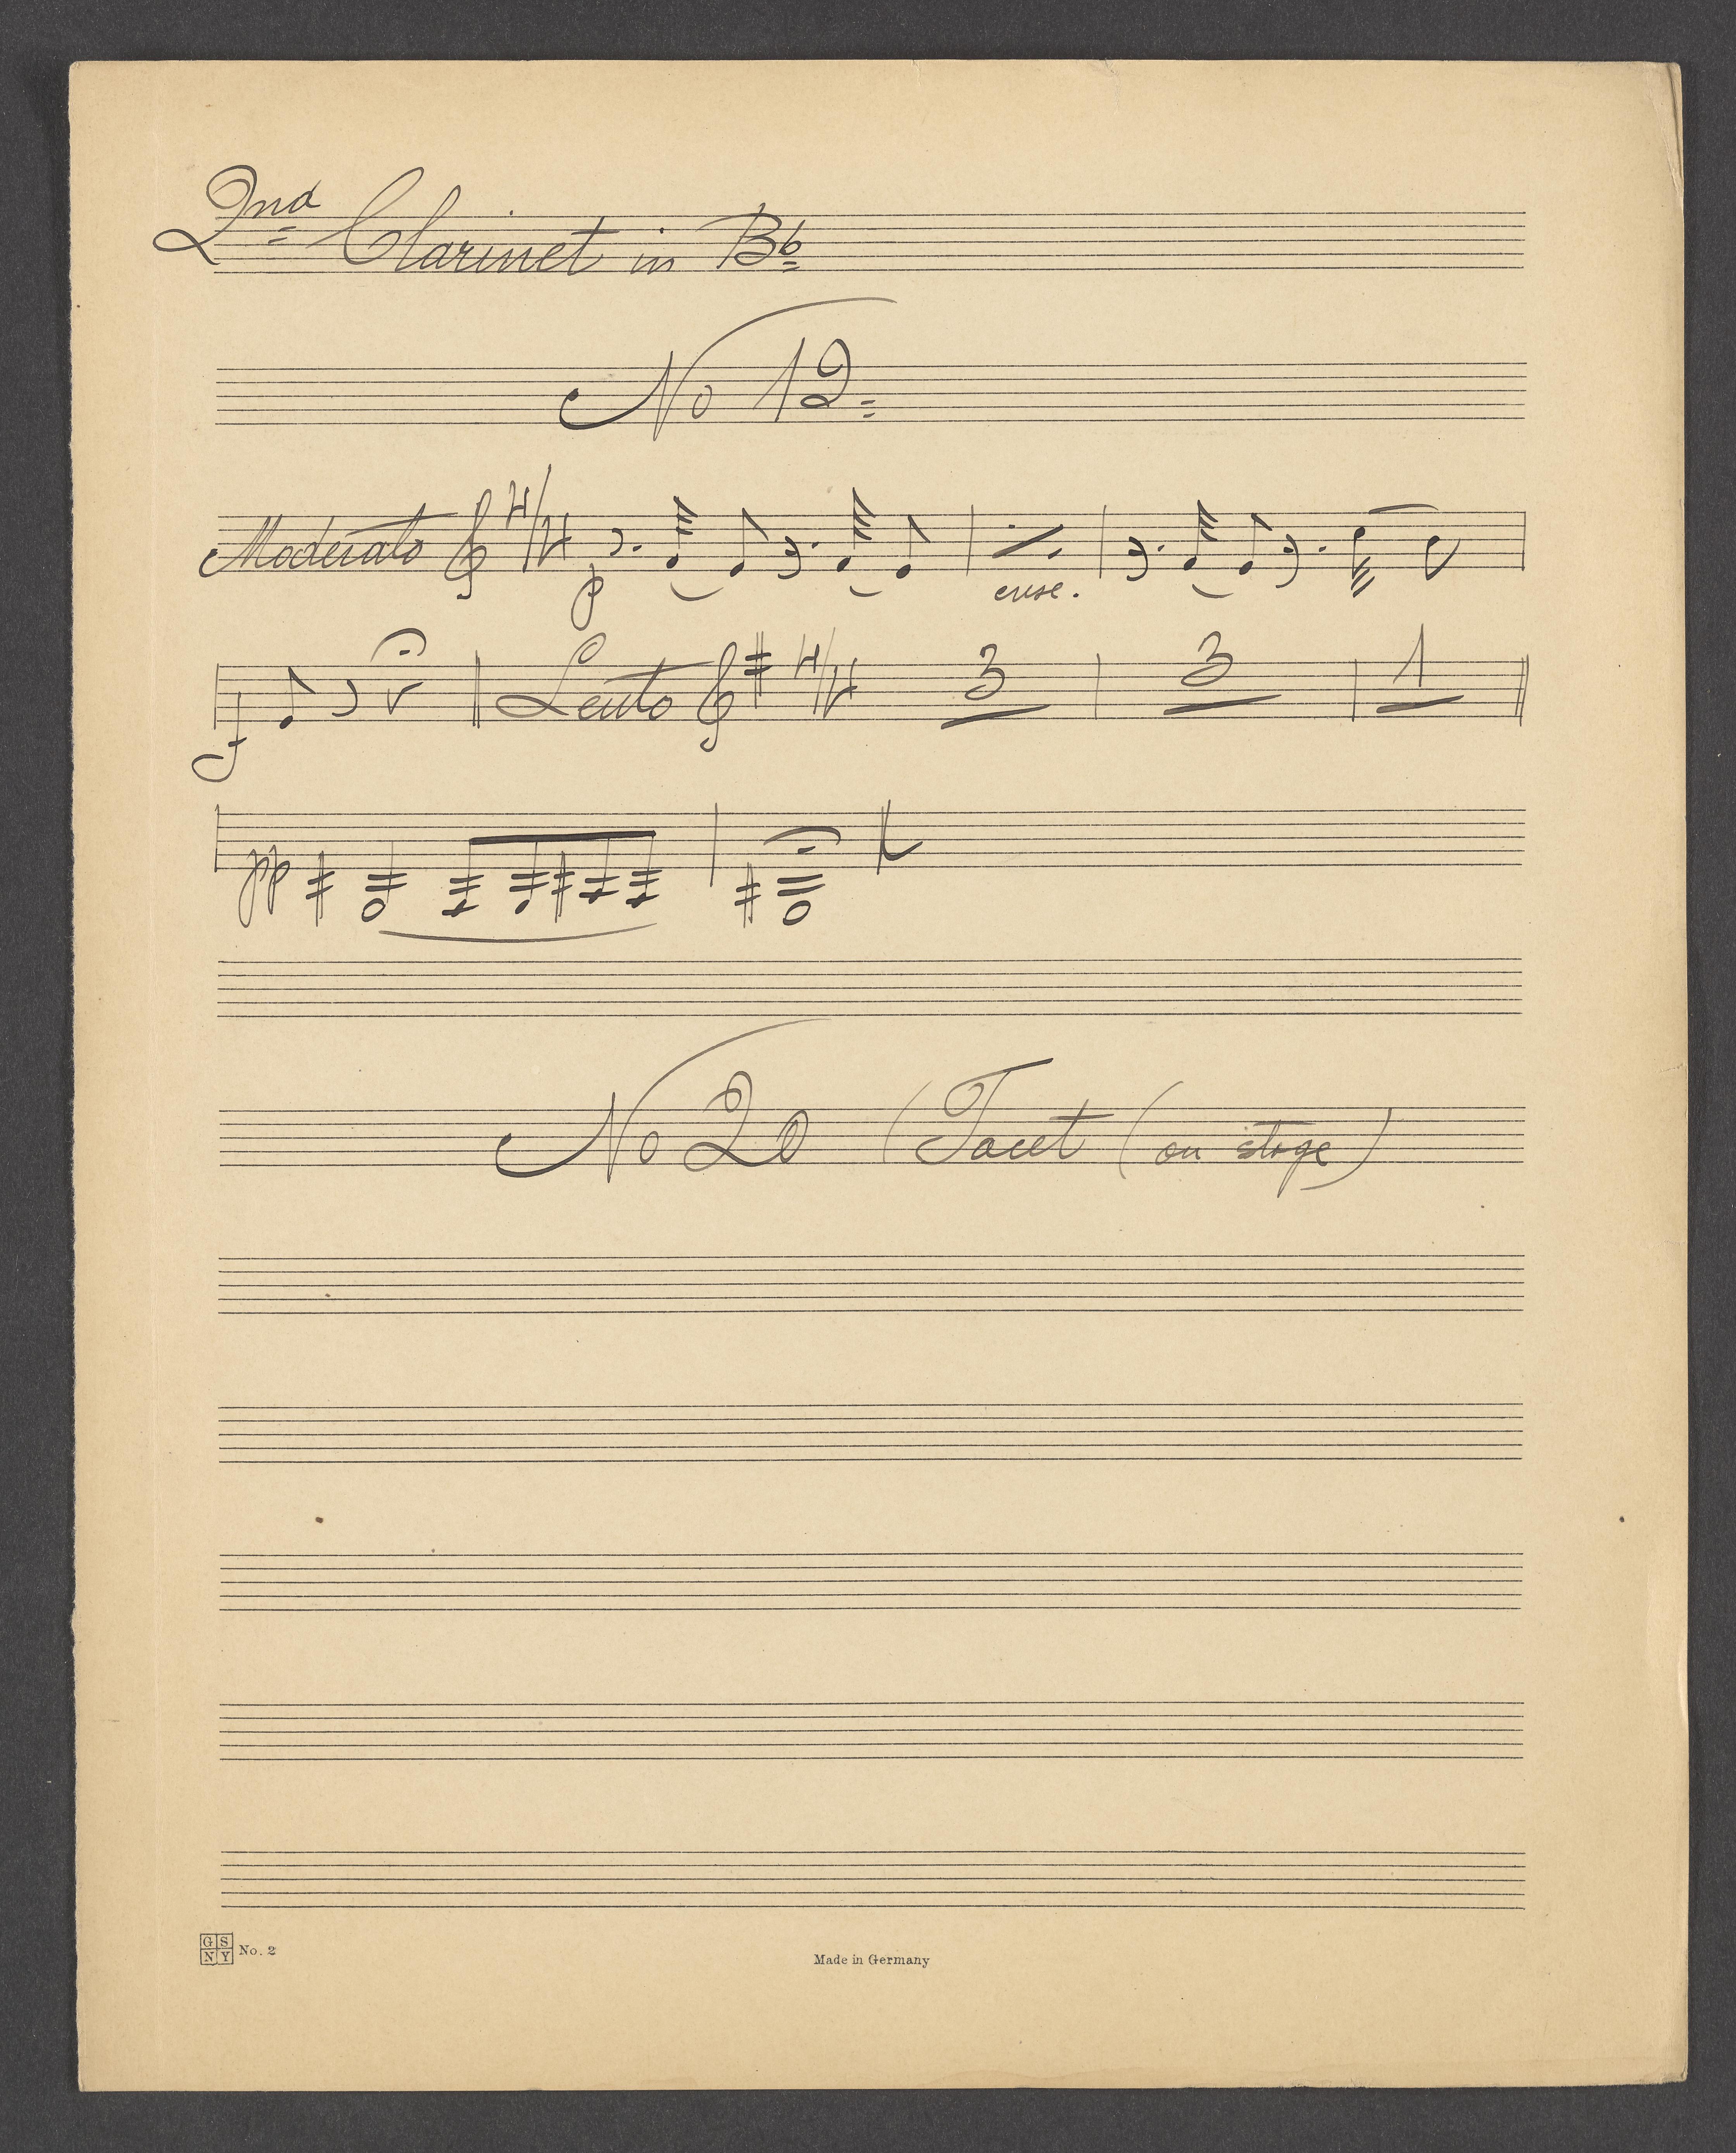 2nd Clarinet in Bb
No 12
Moderato 4/4
p
cresc.
f Lento 4/4 3 3 1
pp
No 20 (Tacet (on stage)
GS NY No. 2
Made in Germany